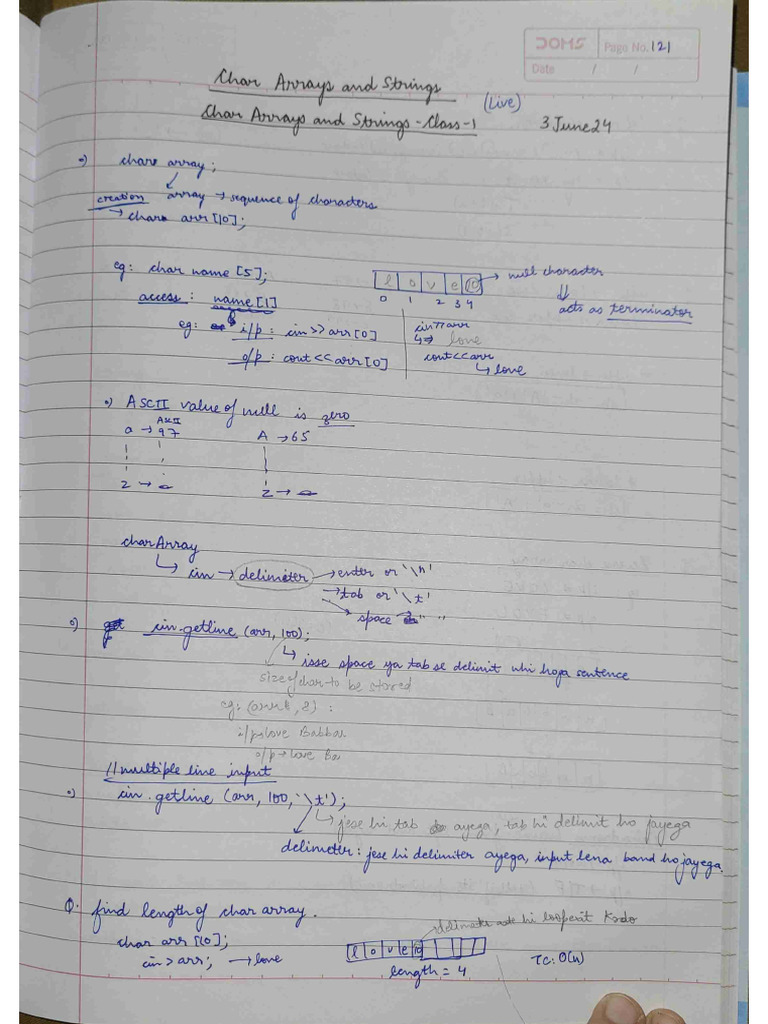 DOMS Page No. 121
Date / /
Char Arrays and Strings
(Live)
Char Arrays and Strings - Class-1 3 June 24
char array;
creation array → sequence of characters
→ char arr[10];
eg: char name[5]; l o v e \0 → null character
0 1 2 3 4
access: name[1] acts as terminator
eg: i/p: cin>>arr[0] cin>>arr
↳→ love
o/p: cout<<arr[0] cout<<arr
↳ love
ASCII value of null is zero
ASCII
a → 97 A → 65
z → z →
char Array
↳ cin → delimeter → enter or '\n'
→ tab or '\t'
→ space " "
cin.getline (arr, 100);
↳ isse space ya tab se delimit nhi hoga sentence
size of char to be stored
eg: (arr, 8) :
i/p→love Babbar
o/p→love Ba
//multiple line input
cin.getline (arr, 100, '\t');
↳ jese hi tab ayega, tab hi delimit ho jayega
delimeter: jese hi delimiter ayega, input lena band ho jayega.
Q. find length of char array.
delimeter aate hi loop exit krdo
char arr[10];
cin > arr; → love l o v e \0 TC: O(n)
length = 4